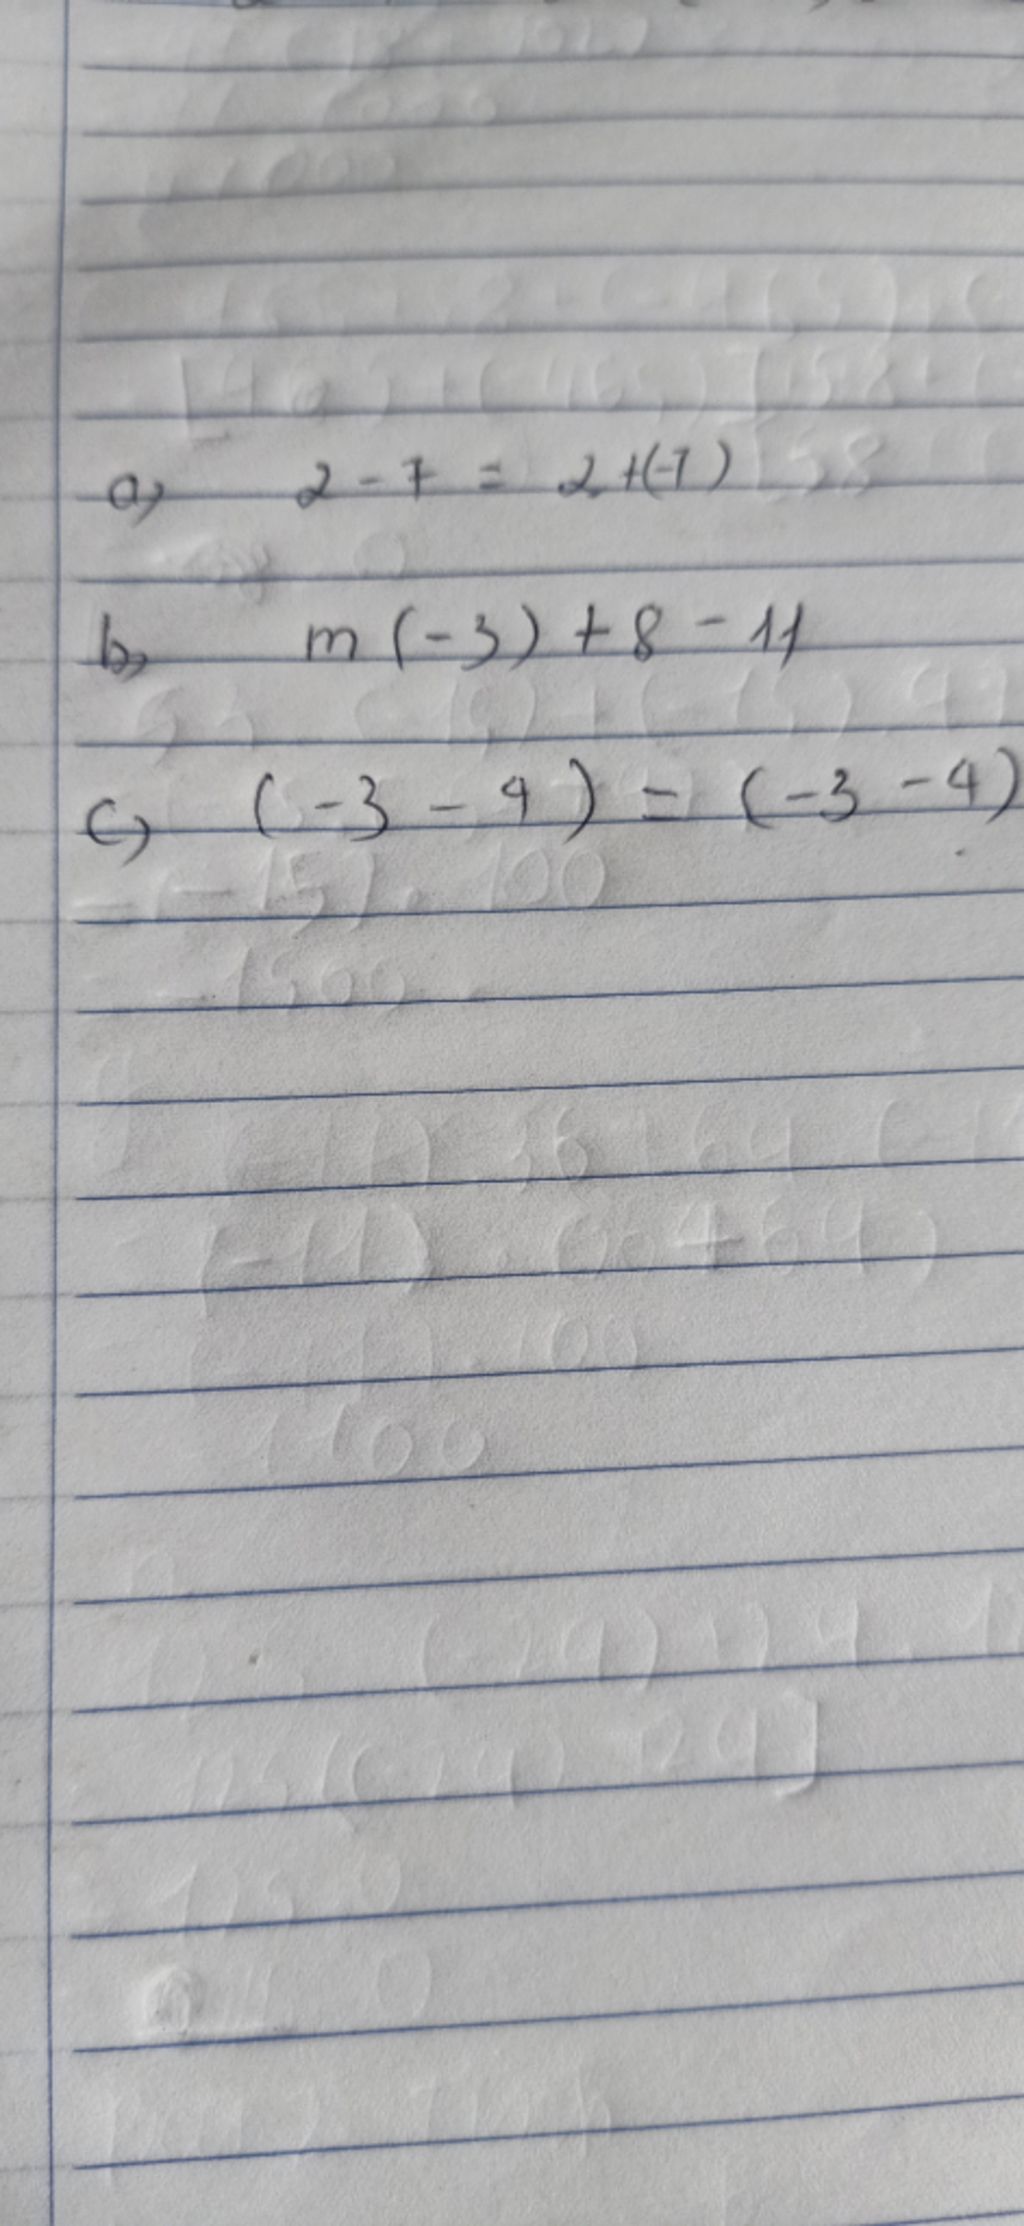 a) 2 - 7 = 2 + (-7)
b) m (-3) + 8 - 11
c) (-3 - 4) = (-3 - 4)